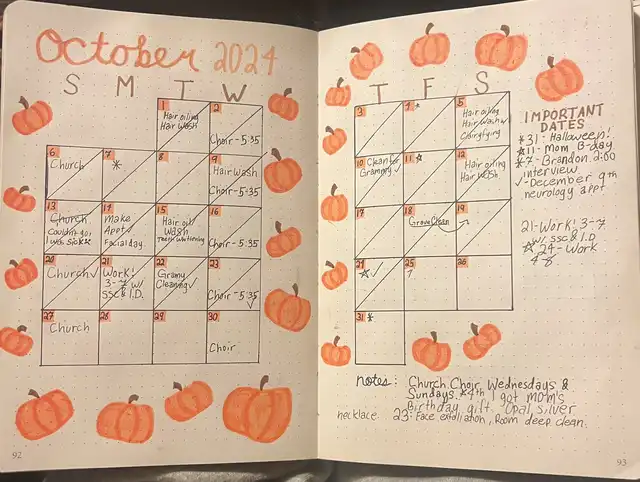 October 2024
S M T W
T F S
1
Hair oiling
Hair Wash
2
Choir-5:35
3
4 *
5
Hair oiling
Hair Wash w/
Clarifying
6
Church
7
*
8
9
Hair Wash
Choir-5:35
10 Clean for
Grammy
11 ☆
12
Hair oiling
Hair Wash
13
Church
Couldn't go!
I was Sick
14
Make
Appt✓
Facial day.
15
Hair oil/
Wash
Teeth Whitening
16
Choir-5:35
17
18
Grave Clean
19
20
Church✓
21
Work!
3-7 w/
SSC & I.D.
22
Gramy
Cleaning✓
23
Choir-5:35
✓
☆✓
25
26
27
Church
28
29
30
Choir
31 *
IMPORTANT
DATES
*31-Halloween!
☆11-Mom B-day
*7-Brandon 2:00
interview
✓-December 9th
neurology appt
21-Work! 3-7
w/ SSC & I.D
☆24-Work
4-8
notes: Church Choir, Wednesdays &
Sundays. *4th I got mom's
Birthday gift. Opal, silver
necklace 23: Face exfoliation, Room deep clean.
92
93